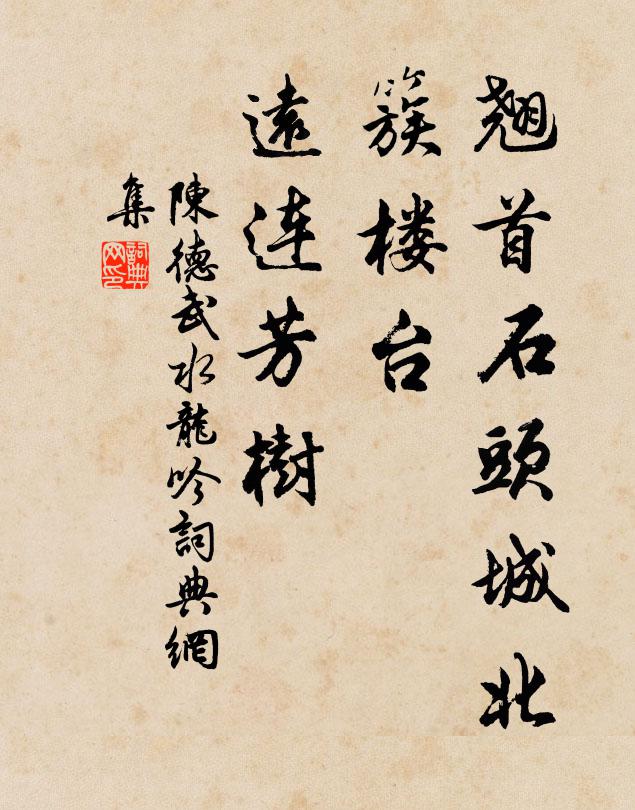 翹首石頭城北
簇楼台
遠连芳樹
陳德武水龍吟詞典網
集
詞典網印